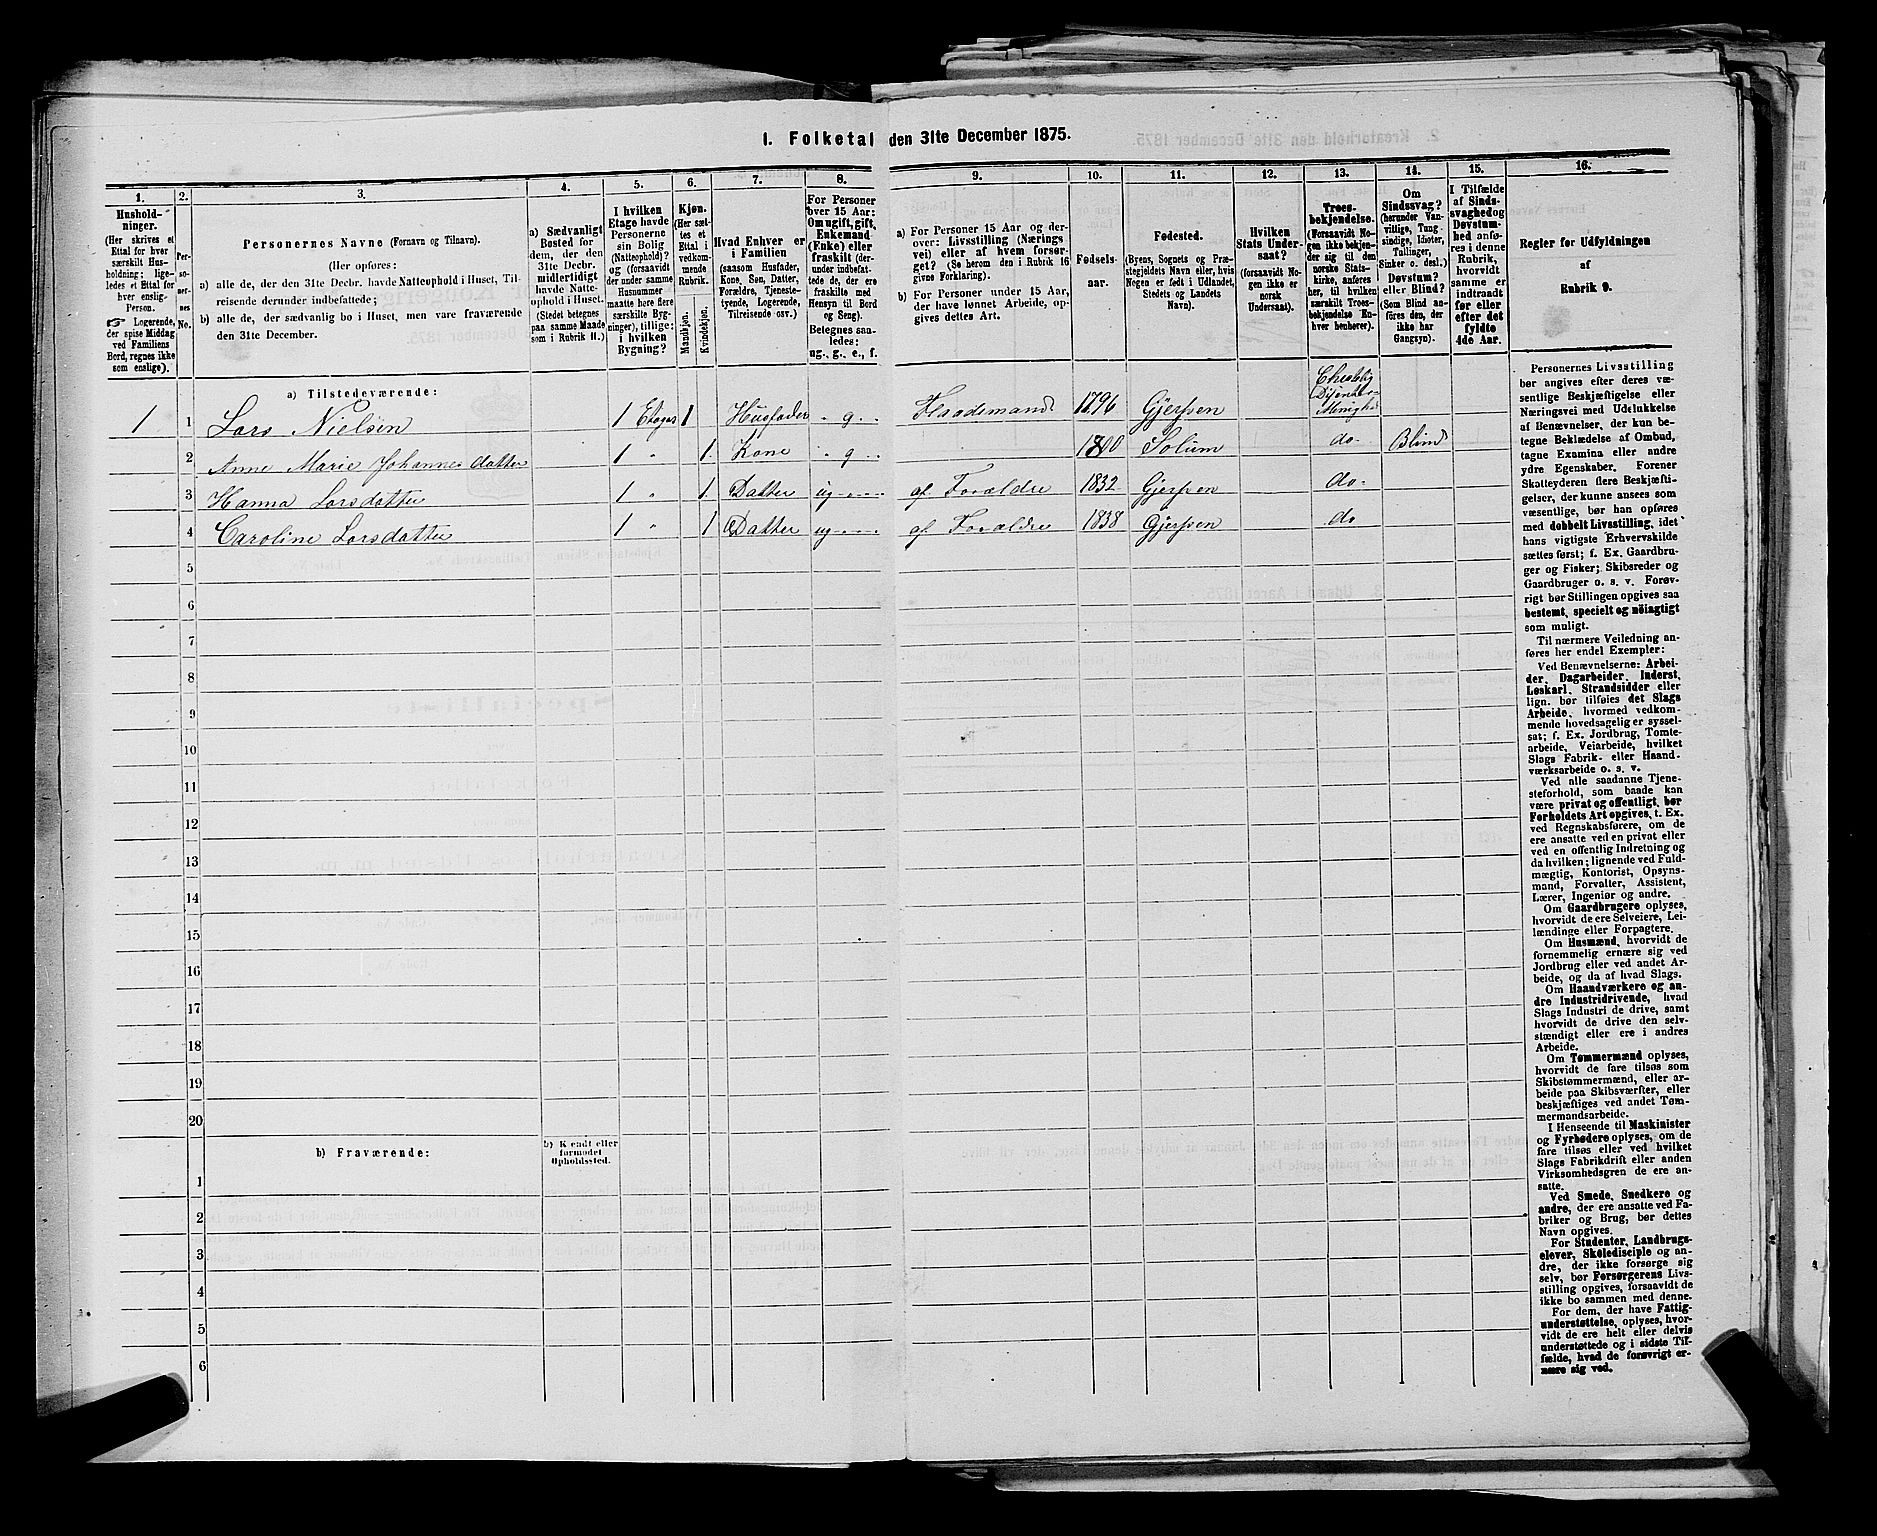 1. Folketal den 31te December 1875.
1. 2. 3. 4. 5. 6. 7. 8. 9. 10. 11. 12. 13. 14. 15. 16.
Hushold-
ninger.
(Her skrives et
Ettal for hver
særskilt Hus-
holdning; lige-
ledes et Ettal for
hver enslig
Person.
☞ Logerende,
der spise Middag
ved Familiens
Bord, regnes ikke
som enslige).
Per-
so-
ner-
nes
No.
Personernes Navne (Fornavn og Tilnavn).
(Her opføres:
a) alle de, der den 31te Decbr. havde Natteophold i Huset, Til-
reisende derunder indbefattede;
b) alle de, der sædvanlig bo i Huset, men vare fraværende
den 31te December.
a) Sædvanligt
Bosted for
dem, der den
31te Decbr.
midlertidigt
havde Natte-
ophold i Huset.
(Stedet betegnes
paa samme Maade
som i Rubrik 11.)
I hvilken
Etage havde
Personerne
sin Bolig
(Natteophold)?
og (forsaavidt
der under samme
Husnummer
maatte høre flere
særskilte Byg-
ninger), tillige:
i hvilken
Bygning?
Kjøn.
(Her sæt-
tes et
Ettal i
vedkom-
mende
Rubrik.
Mandkjøn.
Kvindekjøn.
Hvad Enhver er
i Familien
(saasom Husfader,
Kone, Søn, Datter,
Forældre, Tjeneste-
tyende, Logerende,
Tilreisende osv.)
For Personer
over 15 Aar:
Om ugift, gift,
Enkemand
(Enke) eller
fraskilt (der-
under indbefat-
tede de, der ere
fraskilte med
Hensyn til Bord
og Seng).
Betegnes saa-
ledes:
ug., g., e., f.
a) For Personer 15 Aar og der-
over: Livsstilling (Nærings
vei) eller af hvem forsør-
get? (Se herom den i Rubrik 16
givne Forklaring).
b) For Personer under 15 Aar,
der have lønnet Arbeide, op-
gives dettes Art.
Fødsels-
aar.
Fødested.
(Byens, Sognets og Præ-
stegjeldets Navn eller, hvis
Nogen er født i Udlandet,
Stedets og Landets
Navn).
Hvilken
Stats Under-
saat?
(forsaavidt No-
gen ikke er
norsk
Undersaat).
Troes-
bekjendelse.
(Forsaavidt No-
gen ikke bekjen-
der sig til den
norske Stats-
kirke, anføres
her, til hvilken
særskilt Troes-
bekjendelse En-
hver henhører).
Om
Sindssvag?
(herunder Van-
vittige, Tung-
sindige, Idioter,
Tullinger,
Sinker o. desl.)
Døvstum?
eller Blind?
(Som Blind an-
føres den, der
ikke har
Gangsyn).
I Tilfælde
af Sinds-
svaghed og
Døvstum-
hed anfø-
res i denne
Rubrik,
hvorvidt
samme er
indtraadt
før eller
efter det
fyldte
4de Aar.
Regler for Udfyldningen
af
Rubrik 9.
a) Tilstedeværende:
1 1 Lars Nielsen 1 Etage 1 Husfader g Haadsmand 1796 Gjerpen Menighd
2 Anne Marie Johannesdatter 1 " 1 Kone g 1800 Solum do Blind
3 Hanna Larsdatter 1 " 1 Datter ug af Forældre 1832 Gjerpen do
4 Caroline Larsdatter 1 " 1 Datter ug af Forældre 1838 Gjerpen do
5
6
7
8
9
10
11
12
13
14
15
16
17
18
19
20
b) Fraværende:
b) Kjendt eller
formodet
Opholdssted.
1
2
3
4
5
6
Personernes Livsstilling
bør angives efter deres væ-
sentlige Beskjæftigelse eller
Næringsvei med Udelukkelse
af Benævnelser, der kun be-
tegne Beklædelse af Ombud,
tagne Examina eller andre
ydre Egenskaber. Forener
Skatteyderen flere Beskjæfti-
gelser, der kunne ansees som
væsentlige, bør han opføres
med dobbelt Livsstilling, idet
hans vigtigste Erhvervskilde
sættes først; f. Ex. Gaardbru-
ger og Fisker; Skibsreder og
Gaardbruger o. s. v. Forøv-
rigt bør Stillingen opgives saa
bestemt, specielt og nöiagtigt
som muligt.
Til nærmere Veiledning an-
føres her endel Exempler:
Ved Benævnelserne: Arbei-
der, Dagarbeider, Inderst,
Løskarl, Strandsidder eller
lign. bør tilføies det Slags
Arbeide, hvormed vedkom-
mende hovedsagelig er syssel-
sat; f. Ex. Jordbrug, Tomte-
arbeide, Veiarbeide, hvilket
Slags Fabrik- eller Haand-
værksarbeide o. s. v.
Ved alle saadanne Tjene-
steforhold, som baade kan
være privat og offentligt, bør
Forholdets Art opgives, t. Ex.
ved Regnskabsførere, om de
ere ansatte ved en privat eller
ved en offentlig Indretning og
da hvilken; lignende ved Fuld-
mægtig, Kontorist, Opsyns-
mand, Forvalter, Assistent,
Lærer, Ingeniør og andre.
Om Gaardbrugere oplyses,
hvorvidt de ere Selveiere, Lei-
lændinge eller Forpagtere.
Om Husmænd, hvorvidt de
fornemmelig ernære sig ved
Jordbrug eller ved andet Ar-
beide, og da af hvad Slags.
Om Haandværkere og an-
dre Industridrivende, hvad
Slags Industri de drive, samt
hvorvidt de drive den selv-
stændigt eller ere i andres
Arbeide.
Om Tømmermænd oplyses,
hvorvidt de fare tilsøs som
Skibstømmermænd, eller ar-
beide paa Skibsværfter, eller
beskjæftiges ved andet Tøm-
mermandsarbeide.
I Henseende til Maskinister
og Fyrbødere oplyses, om de
fare tilsøs eller ved hvilket
Slags Fabrikdrift eller anden
Virksomhedsgren de ere an-
satte.
Ved Smede, Snedkere og
andre, der ere ansatte ved Fa-
briker og Brug, bør dettes
Navn opgives.
For Studenter, Landbrugs-
elever, Skoledisciple og an-
dre, der ikke forsørge sig
selv, bør Forsørgerens Livs-
stilling opgives, forsaavidt de
ikke bo sammen med denne.
For dem, der have Fattig-
understøttelse, oplyses, hvor-
vidt de ere helt eller delvis
understøttede og i sidste Til-
fælde, hvad de forøvrigt er-
nære sig ved.